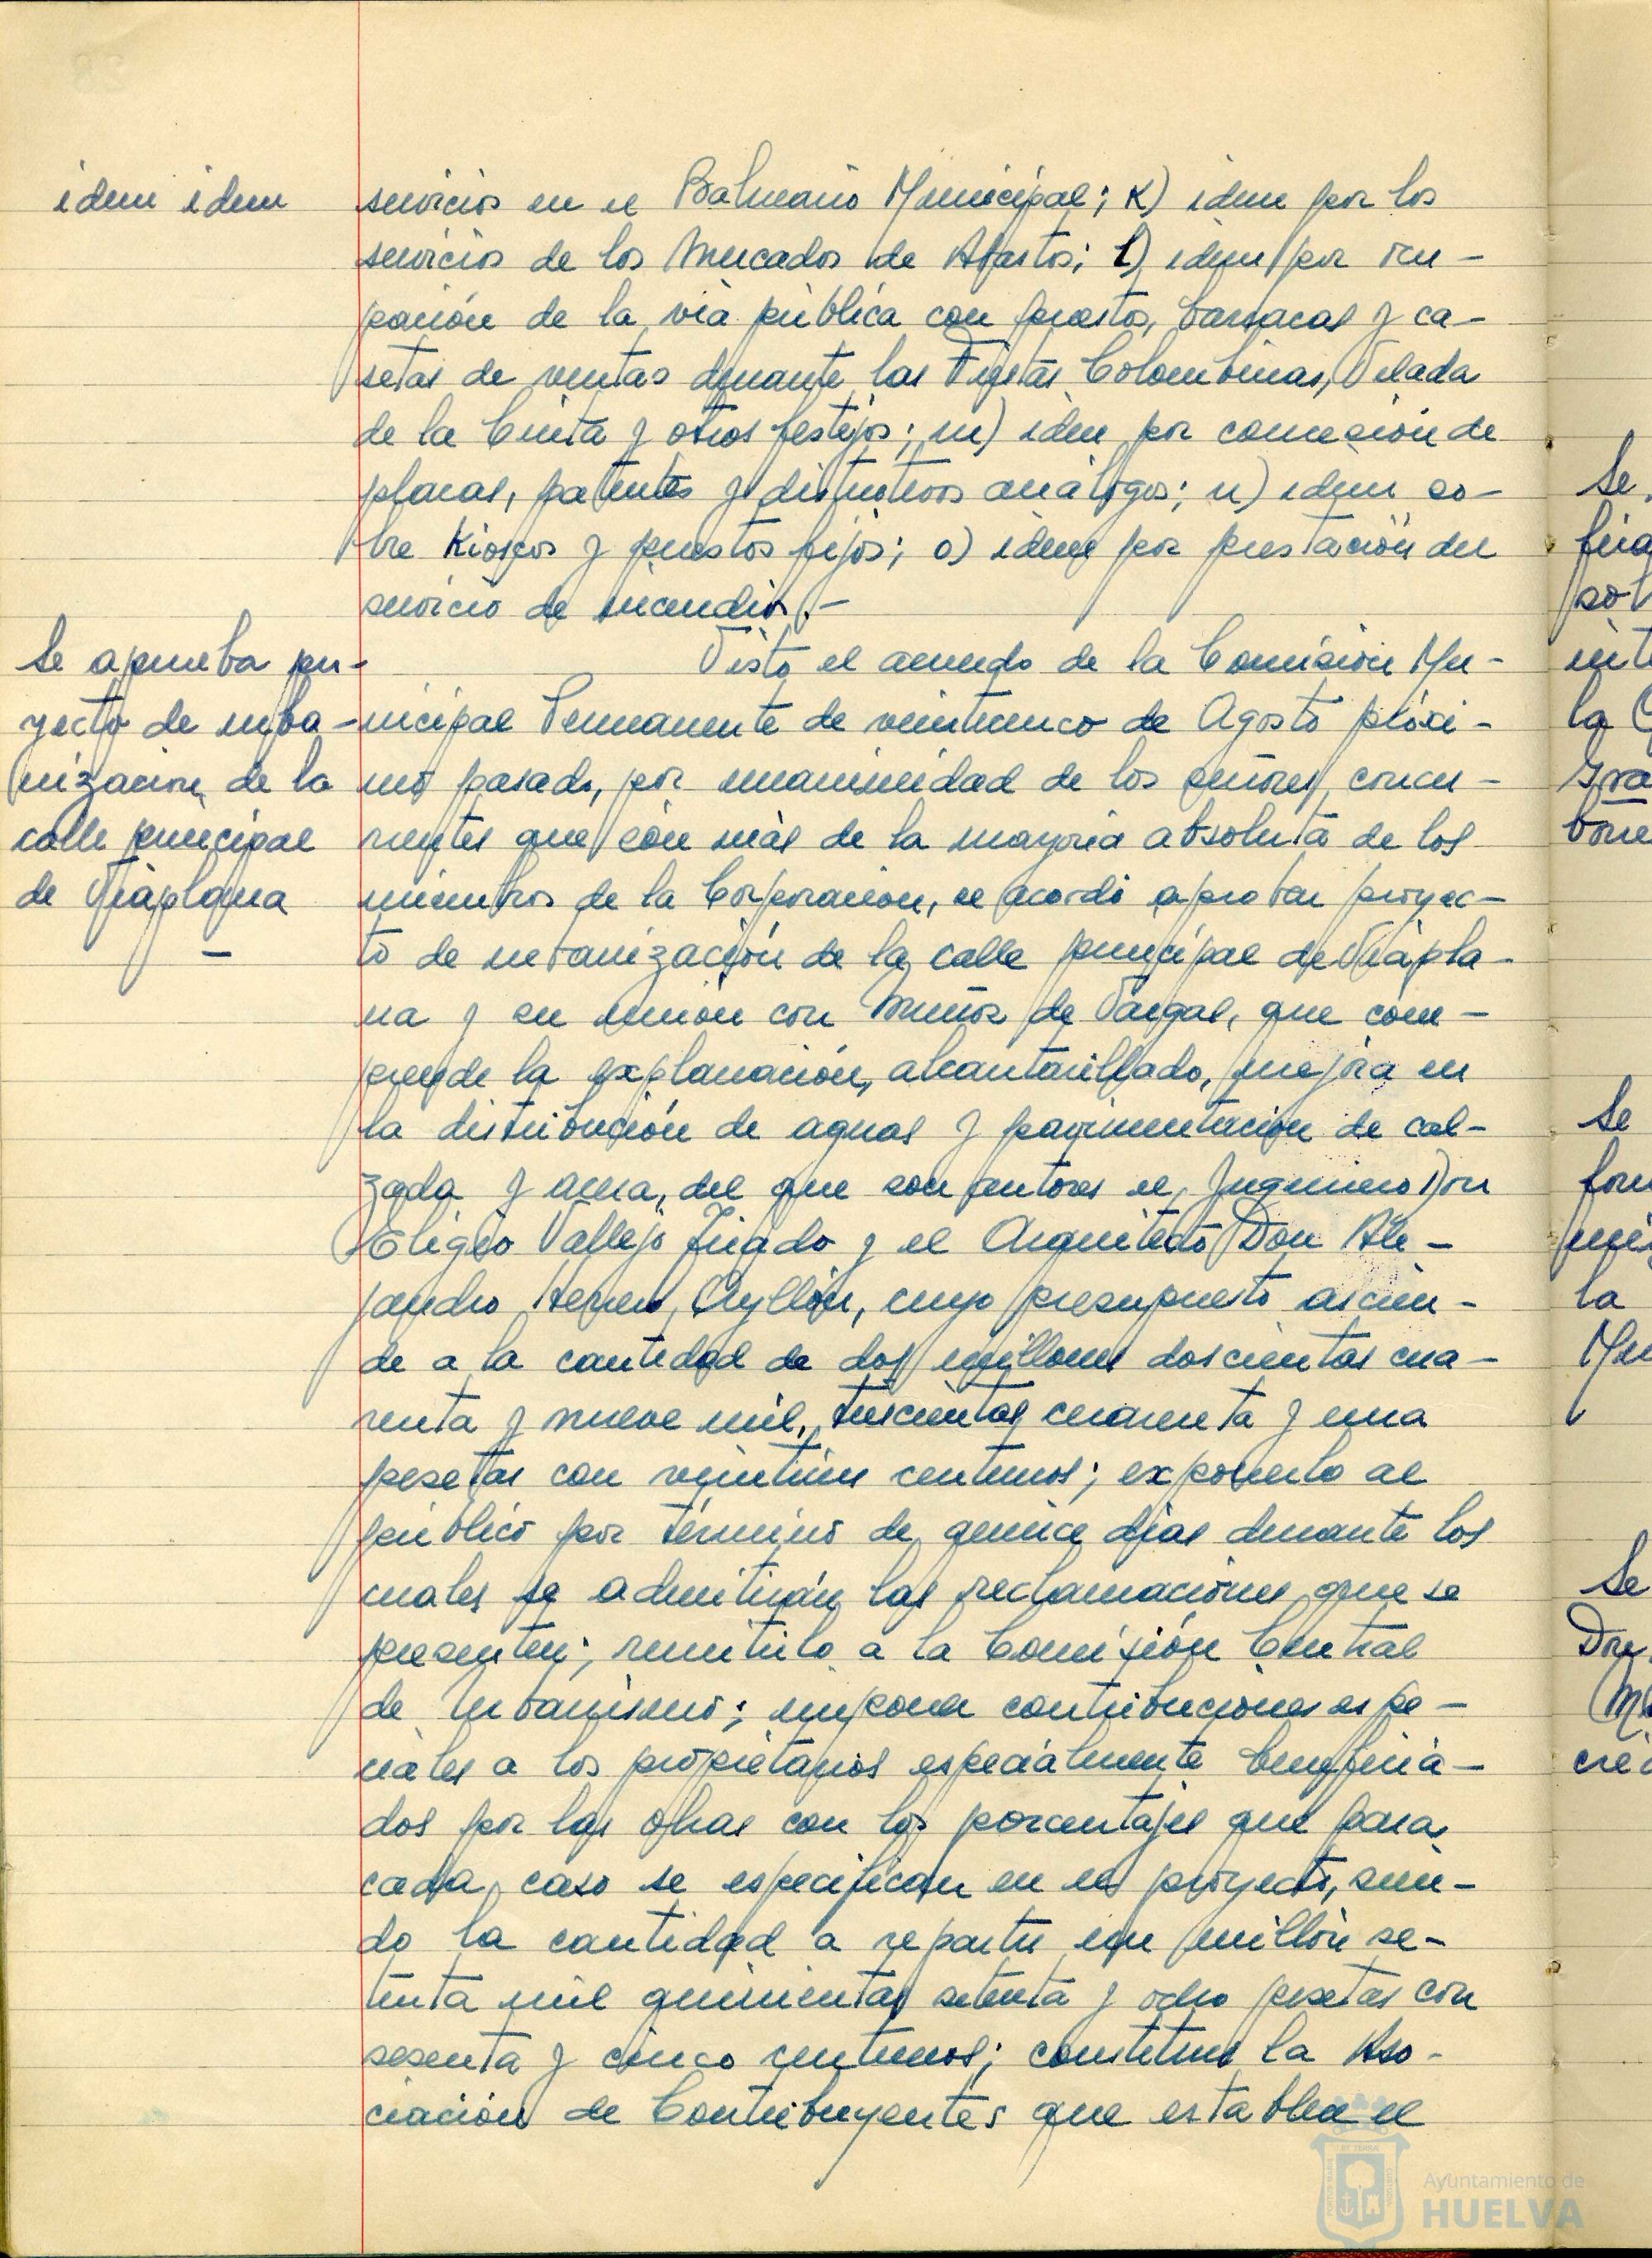 idem idem
servicios en el Balneario Municipal; K) idem por los
servicios de los Mercados de Abastos; l) idem por ocu-
pación de la vía pública con puestos, barracas y ca-
setas de ventas durante las Fiestas Colombinas, Velada
de la Cinta y otros festejos; m) idem por concesión de
placas, patentes y distintivos análogos; n) idem so-
bre Kioscos y puestos fijos; o) idem por prestación del
servicio de incendios.-
Se aprueba pro-
yecto de urba-
nización de la
calle principal
de Viaplana
-
Visto el acuerdo de la Comisión Mu-
nicipal Permanente de veinticinco de Agosto próxi-
mo pasado, por unanimidad de los señores concu-
rrentes que son más de la mayoría absoluta de los
miembros de la Corporación, se acordó aprobar proyec-
to de urbanización de la calle principal de Viapla-
na y su unión con Muñoz de Vargas, que com-
prende la explanación, alcantarillado, mejora en
la distribución de aguas y pavimentación de cal-
zada y acera, del que son autores el Ingeniero Don
Eligio Vallejo Tirado y el Arquitecto Don Ale-
jandro Herrero Ayllón, cuyo presupuesto ascien-
de a la cantidad de dos millones doscientas cua-
renta y nueve mil, trescientas cuarenta y una
pesetas con céntimos; exponerlo al
público por término de quince días durante los
cuales se admitirán las reclamaciones que se
presenten; remitirlo a la Comisión Central
de Urbanismo; imponer contribuciones espe-
ciales a los propietarios especialmente beneficia-
dos por las obras con los porcentajes que para
cada caso se especifican en el proyecto, sien-
do la cantidad a repartir un millón se-
tenta mil quinientas setenta y ocho pesetas con
sesenta y cinco céntimos; constituir la Aso-
ciación de Contribuyentes que establece el
Se
la
Se
la
Se
Ayuntamiento de
HUELVA